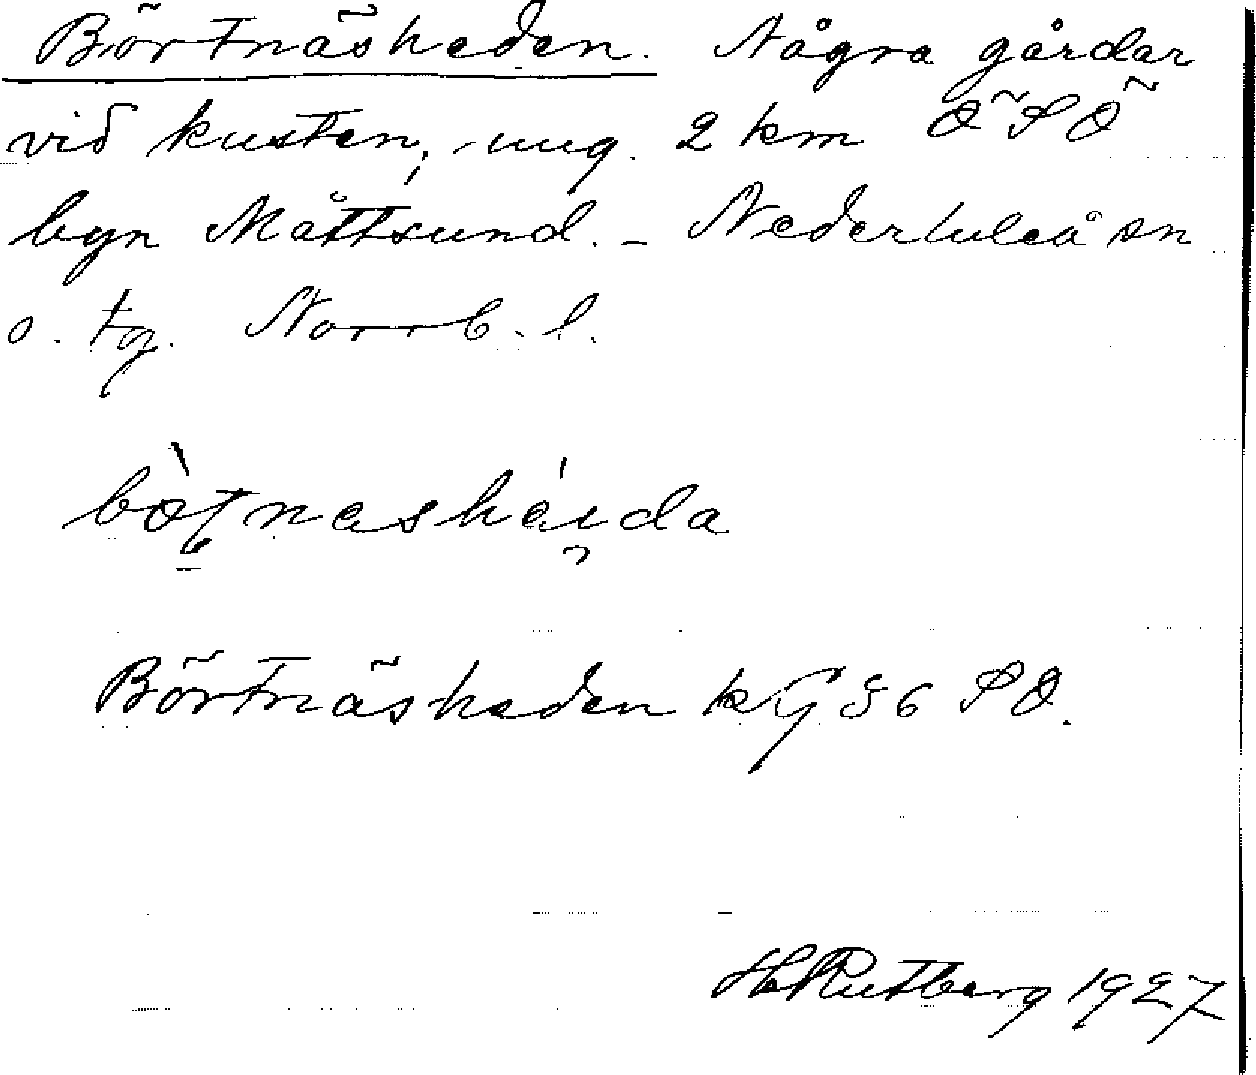 Börtnäsheden. Några gårdar
vid kusten, ung. 2 km ÖSÖ
byn Måttsund. - Nederluleå sn
o. tg. Norrb. l.
Börtnäsheden kG 86 SO.
H Rutberg 1927